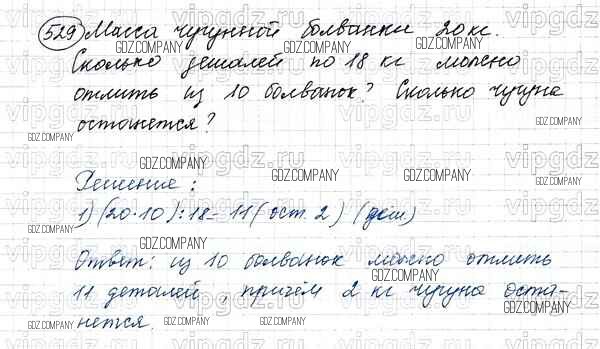 529 Масса чугунной болванки 20 кг.
Сколько деталей по 18 кг можно
отлить из 10 болванок? Сколько чугуна
останется?
Решение:
1) (20·10):18=11(ост. 2) (дет)
Ответ: из 10 болванок можно отлить
11 деталей, причём 2 кг чугуна оста-
нется.
vipgdz.ru
GDZ.COMPANY